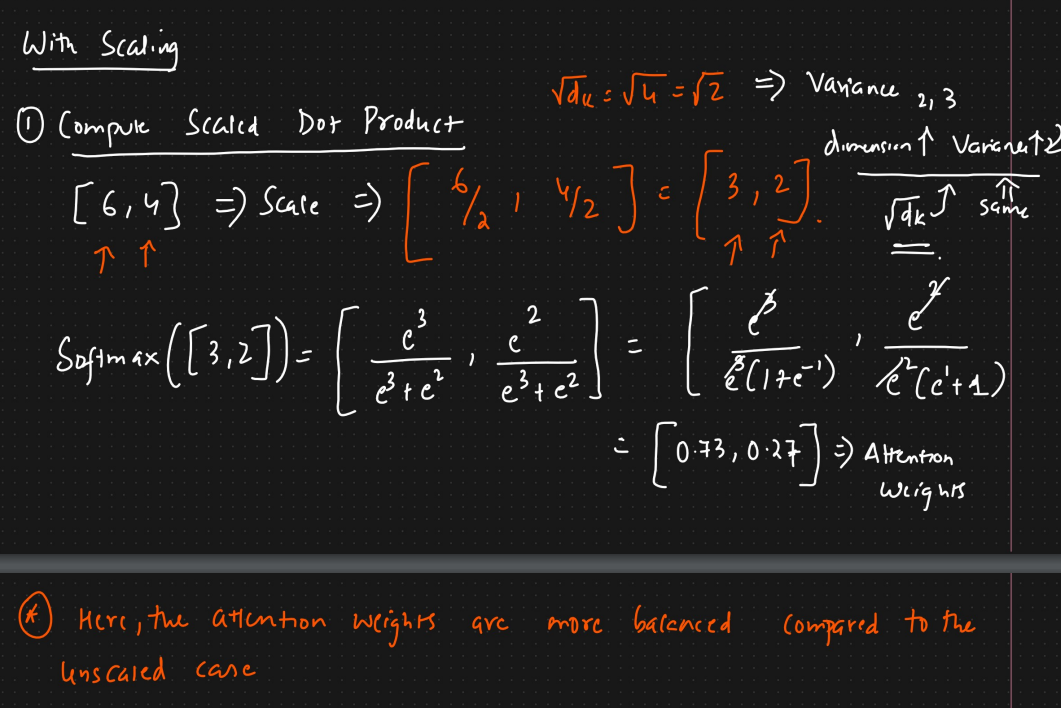 With Scaling
√dk = √4 = √2 ⇒ Variance 2, 3
① Compute Scaled Dot Product
dimension ↑ Variance ↑
[6, 4] ⇒ Scale ⇒ [6/2, 4/2] = [3, 2].
√dk ⇑ same
Softmax([3,2]) = [e^3/(e^3+e^2), e^2/(e^3+e^2)] = [e^3/(e^3(1+e^-1)), e^2/(e^2(e^1+1))]
= [0.73, 0.27] ⇒ Attention
Weights
* Here, the attention weights are more balanced compared to the
unscaled case